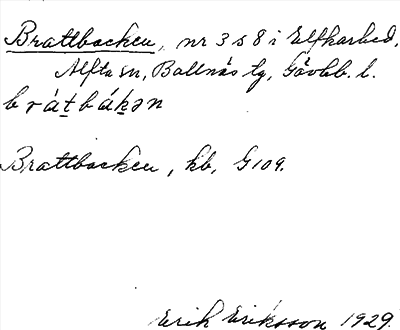 Brattbacken, nr 3 s 8 i Elfkarhed,
Alfta sn, Bollnäs tg, Gävlb. l.
brát̠bák̠ən
Brattbacken, kb, G 109.
Erik Eriksson 1929.